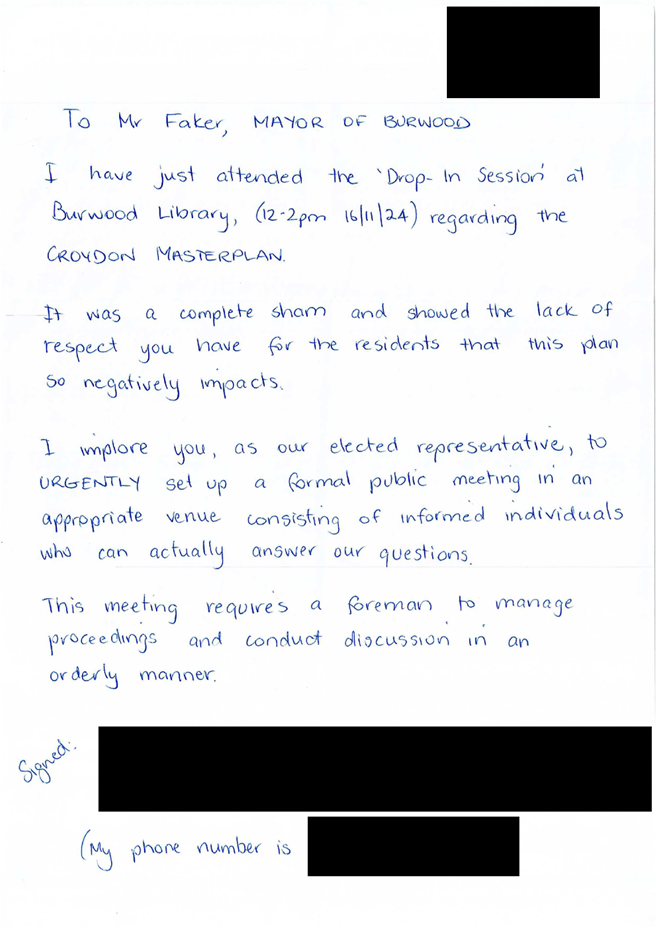 To Mr Faker, MAYOR OF BURWOOD
I have just attended the 'Drop-In Session' at
Burwood Library, (12-2pm 16/11/24) regarding the
CROYDON MASTERPLAN.
It was a complete sham and showed the lack of
respect you have for the residents that this plan
so negatively impacts.
I implore you, as our elected representative, to
URGENTLY set up a formal public meeting in an
appropriate venue consisting of informed individuals
who can actually answer our questions.
This meeting requires a foreman to manage
proceedings and conduct discussion in an
orderly manner.
Signed:
(My phone number is